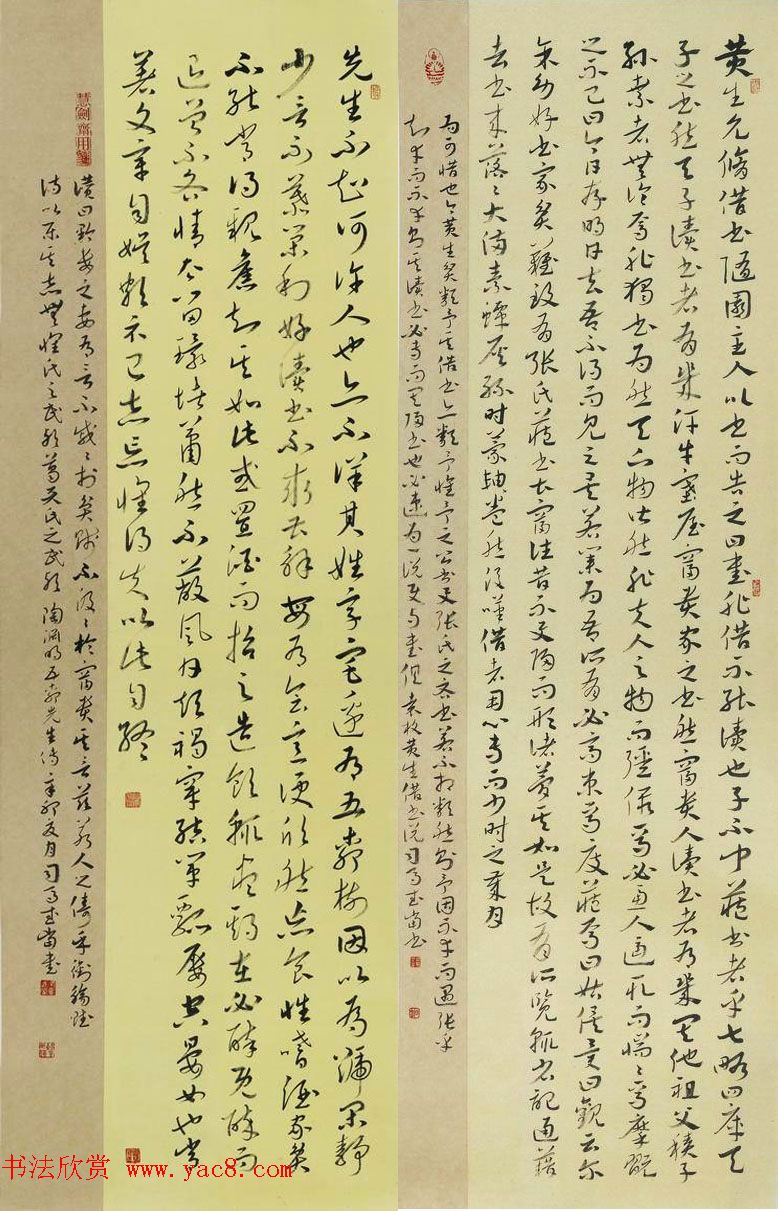 黄生允脩借書隨園主人以書而告之曰書非借不能讀也子不聞藏書者乎七略四庫天
子之書然天子讀書者有幾汗牛塞屋富貴家之書然富貴人讀書者有幾其他祖父積子
孫棄者無論焉非獨書為然天下物皆然非夫人之物而强假焉必慮人逼取而惴惴焉摩玩
之不已曰今日存明日去吾不得而見之矣若業為吾所有必高束焉庋藏焉曰姑俟異日觀云爾
余幼好書家貧難致有張氏藏書甚富往借不與歸而形諸夢其如是故有所覽輒省記通籍
去書来落落大滿素蟫灰絲時蒙軸卷然後嘆借者用心專而少時之歲月
為可惜也今黄生貧類予其借書亦類予惟予之公書與張氏之吝書若不相類然則予固不幸而遇張乎
知幸而不幸則其讀書也必專而其歸書也必速為一說使與書俱 袁枚黄生借書說 司馬武當書
先生不知何許人也亦不詳其姓字宅邊有五柳樹因以為號閑靜
少言不慕榮利好讀書不求甚解每有會意便欣然忘食性嗜酒家貧
不能常得親舊知其如此或置酒而招之造飲輒盡期在必醉既醉而
退曾不吝情去留環堵蕭然不蔽風日短褐穿結簞瓢屢空晏如也常
著文章自娱頗示己志忘懷得失以此自終
慧劍齋用箋
讚曰黔婁之妻有言不戚戚於貧賤不汲汲於富貴其言兹若人之儔乎銜觴賦
詩以樂其志無懷氏之民歟葛天氏之民歟 陶淵明五柳先生傳 辛卯夏月司馬武當書
书法欣赏 www.yac8.com